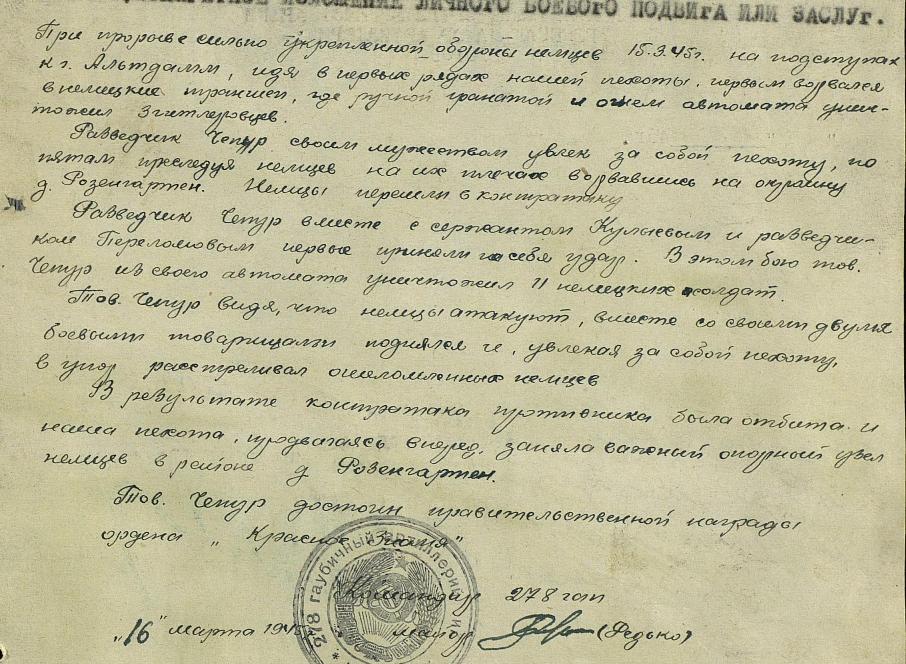 ИЗЛОЖЕНИЕ ЛИЧНОГО БОЕВОГО ПОДВИГА ИЛИ ЗАСЛУГ.
При прорыве сильно укрепленной обороны немцев 15.3.45г. на подступах
к г. Альтдамм, идя в первых рядах нашей пехоты, первым ворвался
в немецкие траншеи, где ручной гранатой и огнем автомата унич-
тожил 3 гитлеровцев.
Разведчик Чепур своим мужеством увлек за собой пехоту, по
пятам преследуя немцев на их плечах ворвавшись на окраину
д. Розенгартен. Немцы перешли в контратаку
Разведчик Чепур вместе с сержантом и разведчи-
ком Переломовым первые приняли на себя удар. В этом бою тов.
Чепур из своего автомата уничтожил 11 немецких солдат.
Тов. Чепур видя, что немцы атакуют, вместе со своими двумя
боевыми товарищами поднялся и, увлекая за собой пехоту,
в упор расстреливал ошеломленных немцев
В результате контратака противника была отбита и
наша пехота, продвигаясь вперед, заняла важный опорный узел
немцев в районе д. Розенгартен.
Тов. Чепур достоин правительственной награды
ордена „Красное Знамя"
278 гаубичный артиллерийский
Командир 278 гап
„16" марта 1945 майор (Федько)